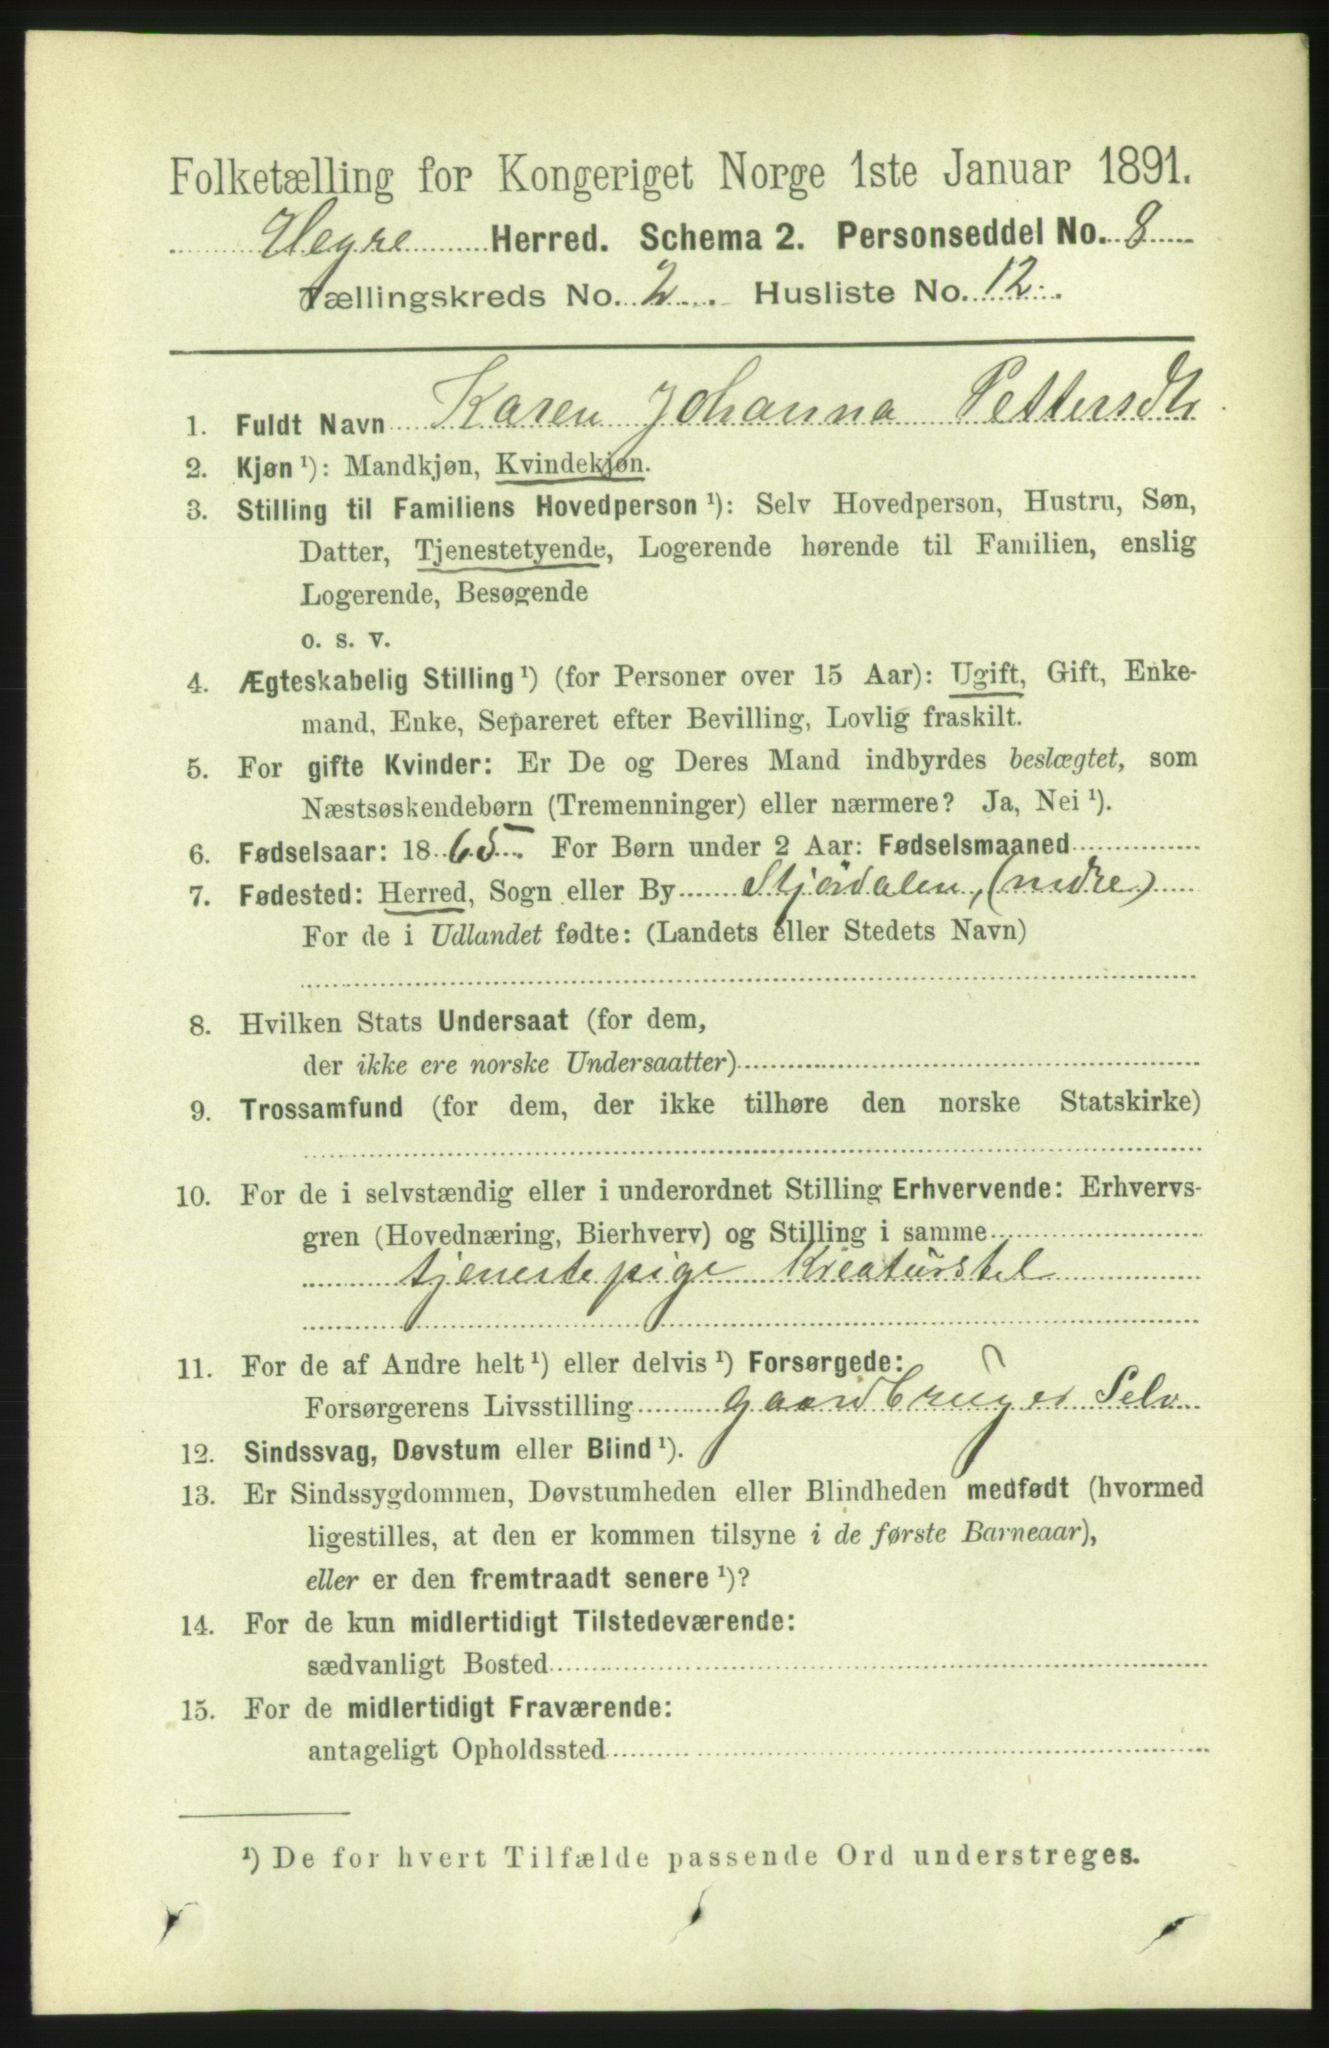 Folketælling for Kongeriget Norge 1ste Januar 1891.
Hegre Herred. Schema 2. Personseddel No. 8
Tællingskreds No. 2. Husliste No. 12.
1. Fuldt Navn Karen Johanna Pettersdtr
2. Kjøn ¹): Mandkjøn, Kvindekjøn.
3. Stilling til Familiens Hovedperson ¹): Selv Hovedperson, Hustru, Søn,
Datter, Tjenestetyende, Logerende hørende til Familien, enslig
Logerende, Besøgende
o. s. v.
4. Ægteskabelig Stilling ¹) (for Personer over 15 Aar): Ugift, Gift, Enke-
mand, Enke, Separeret efter Bevilling, Lovlig fraskilt.
5. For gifte Kvinder: Er De og Deres Mand indbyrdes beslægtet, som
Næstsøskendebørn (Tremenninger) eller nærmere? Ja, Nei ¹).
6. Fødselsaar: 1865. For Børn under 2 Aar: Fødselsmaaned
7. Fødested: Herred, Sogn eller By Stjørdalen, (nedre)
For de i Udlandet fødte: (Landets eller Stedets Navn)
8. Hvilken Stats Undersaat (for dem,
der ikke ere norske Undersaatter)
9. Trossamfund (for dem, der ikke tilhøre den norske Statskirke)
10. For de i selvstændig eller i underordnet Stilling Erhvervende: Erhvervs-
gren (Hovednæring, Bierhverv) og Stilling i samme
tjenestepige Kreaturstel
11. For de af Andre helt ¹) eller delvis ¹) Forsørgede:
Forsørgerens Livsstilling gaardbruger Selv
12. Sindssvag, Døvstum eller Blind ¹).
13. Er Sindssygdommen, Døvstumheden eller Blindheden medfødt (hvormed
ligestilles, at den er kommen tilsyne i de første Barneaar),
eller er den fremtraadt senere ¹)?
14. For de kun midlertidigt Tilstedeværende:
sædvanligt Bosted
15. For de midlertidigt Fraværende:
antageligt Opholdssted
¹) De for hvert Tilfælde passende Ord understreges.